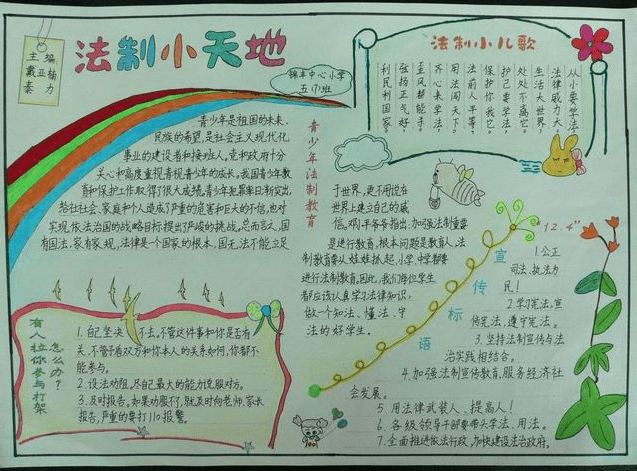 法制小天地
主编
戴亚杨
秦力
锦丰中心小学
五(1)班
法制小儿歌
从小要学法
法律威力大。
生活大世界，
处处不离它。
护己要学法，
保护你我它。
法前人平等，
用法闯天下。
齐心来学法，
歪风帮能手。
弘扬正气好，
利民利国家。
青少年法制教育
青少年是祖国的未来，
民族的希望，是社会主义现代化
事业的建设者和接班人。党和政府十分
关心和高度重视青少年的成长。我国青少年教
育和保护工作取得了很大成绩。青少年犯罪率日渐突出，
给社社会、家庭和个人造成了严重的危害和巨大的不信，也对
实现依法治国的战略目标提出了严峻的挑战。总而言之，国
有国法，家有家规，法律是一个国家的根本，国无法不能立足
于世界，更不用说在
世界上建立自己的威
信。邓小平爷爷指出：加强法制重要
是进行教育，根本问题是教育人，法
制教育要从娃娃抓起，小学、中学都要
进行法制教育。因此，我们每位学生
都应该认真学习法律知识，
做一个知法、懂法、守
法的好学生。
有人拉你参与打架
怎么办？
1.自己坚决不去。不管这件事和你是否有
关，不管矛盾双方和你本人的关系如何，你都不
能参与。
2.设法劝阻，尽自己最大的能力说服对方。
3.及时报告。如果劝服不了，就及时向老师、家长
报告，严重的要打110报警。
宣传标语
"12.4"
1.公正
司法、执法为
民！
2.学习宪法，宣
传宪法，遵守宪法。
3.坚持法制宣传与法
治实践相结合。
4.加强法制宣传教育，服务经济社
会发展。
5.用法律武装人、提高人！
6.各级领导干部要带头学法、用法。
7.全面推进依法行政，加快建设法治政府。